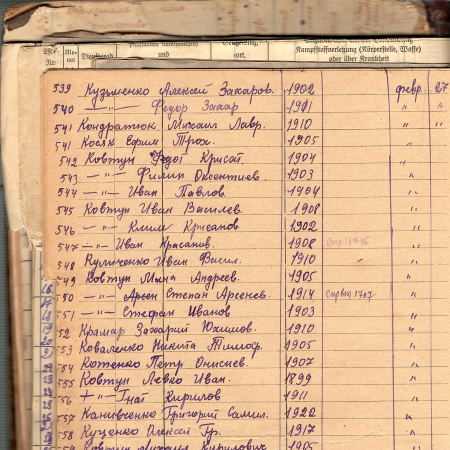 Kampfstoffverletzung (Körperstelle, Waffe)
oder über Krankheit
539 Кузьменко Алексей Захаров. 1902 февр. 27
540 —"— Федор Захар 1901 " "
541 Кондратюк Михаил Лавр. 1910 " "
541 Косяк Ефим Трох. 1905
542 Ковтун Федот Крисат. 1904 "
543 —"— Филип Оксентиев. 1903 "
544 —"— Иван Павлов. 1904 "
545 Ковтун Иван Василев. 1908 "
546 —"— Клим Крисанов 1902 "
547 —"— Иван Красанив. 1908 "
548 Куличенко Иван Васил. 1910 "
549 Ковтун Мина Андреев. 1905 "
550 —"— Арсен Степан Арсенев. 1914 "
551 —"— Стефан Иванов 1903 "
552 Крамар Захарий Юхимов 1910 "
553 Коваленко Никита Тимоф. 1905 "
554 Котенко Петр Онисиев. 1907 "
555 Ковтун Левко Иван. 1899 "
556 —"— Гнат Кирилов 1911 "
557 Канивченко Григорий Самил. 1922 "
558 Куценко Олексей Гр. 1917 "
559 Ковтун Михаил Кирилович 1905 "